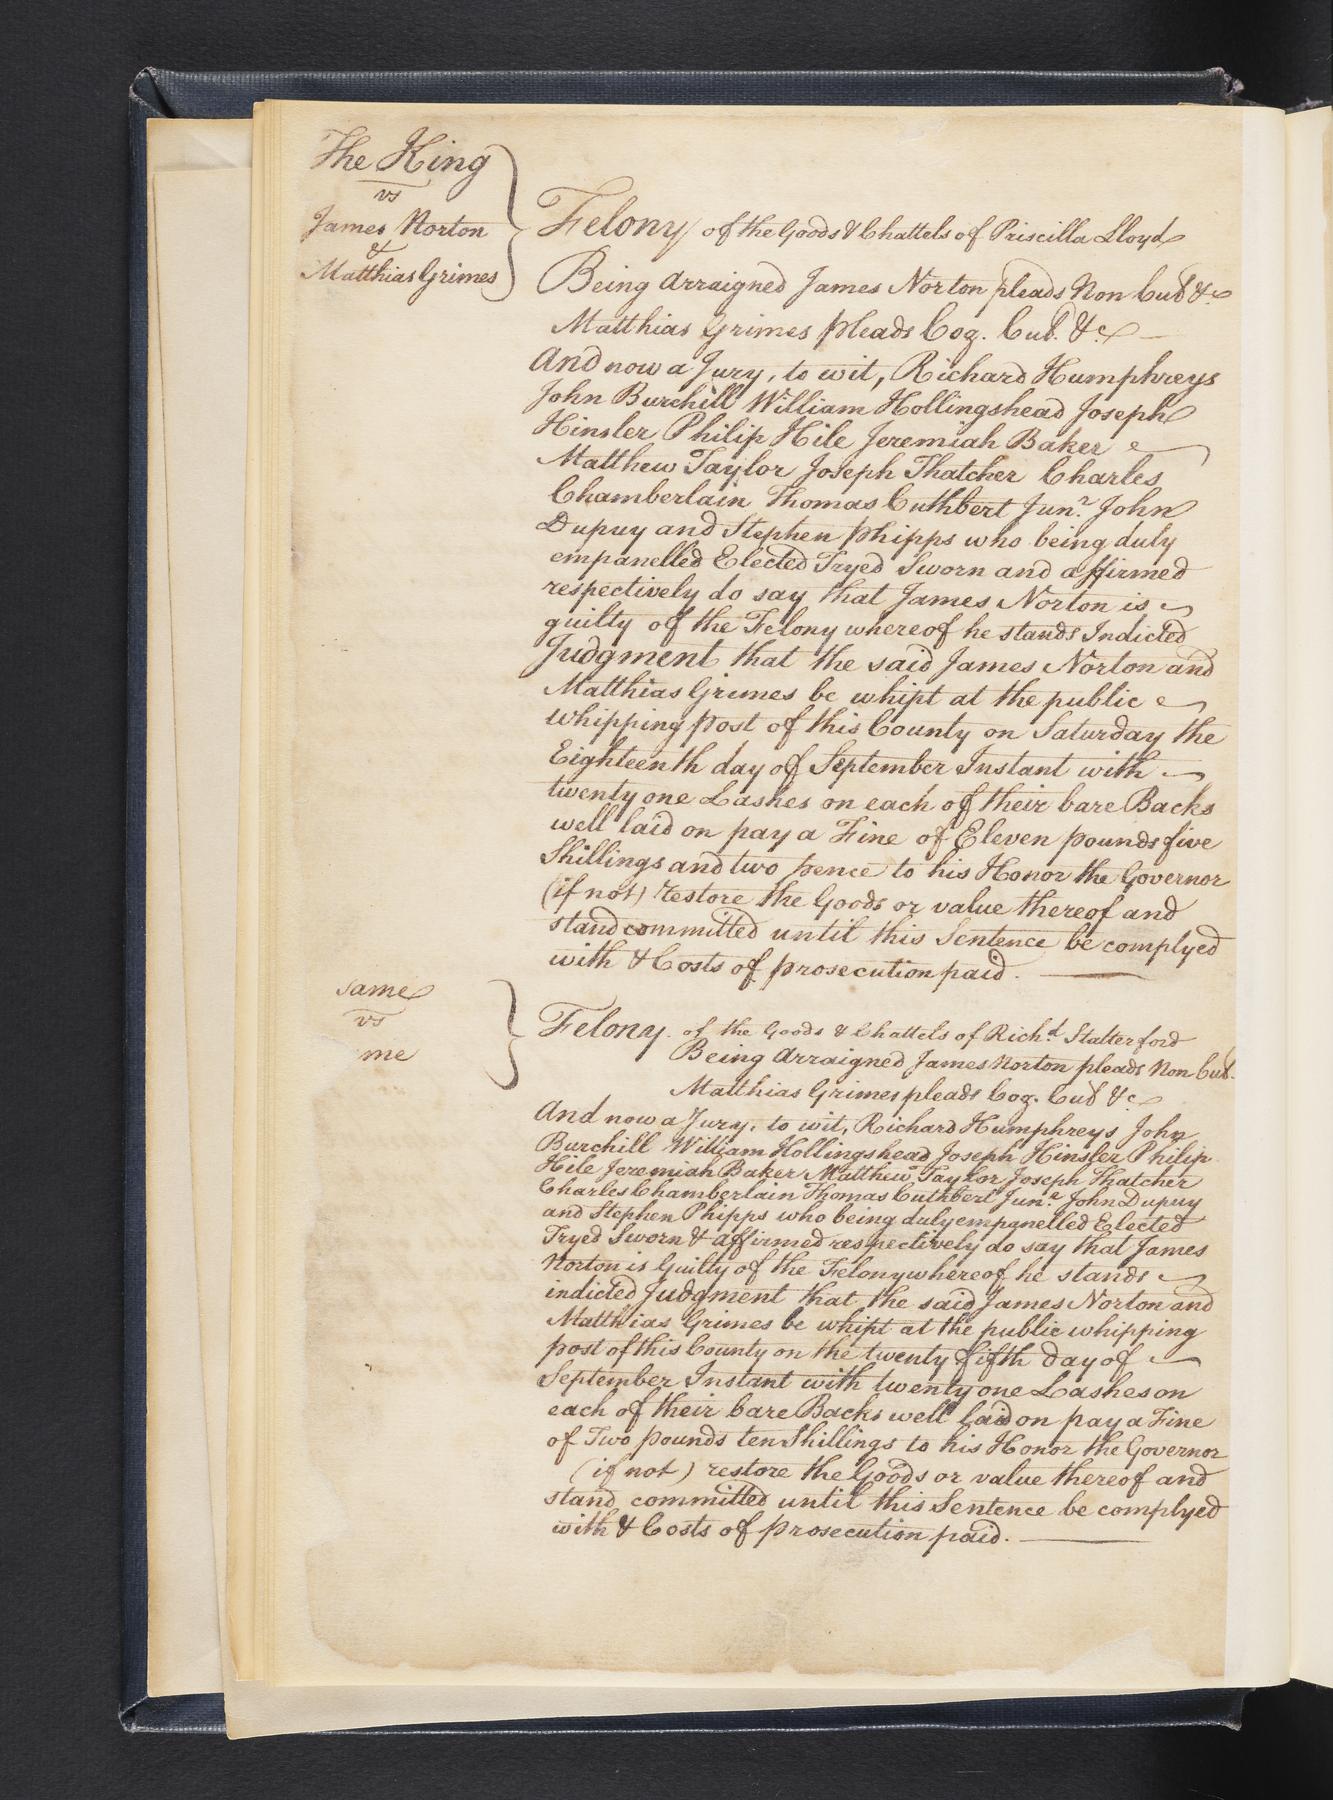 The King
vs
James Norton
&
Matthias Grimes
Felony of the Goods & Chattels of Priscilla Lloyd
Being arraigned James Norton pleads Non Cul &c
Matthias Grimes pleads Cog. Cul. &c
And now a Jury, to wit, Richard Humphreys
John Burchill William Hollingshead Joseph
Hinsler Philip Hile Jeremiah Baker
Matthew Taylor Joseph Thatcher Charles
Chamberlain Thomas Cuthbert Junr. John
Dupuy and Stephen Phipps who being duly
empanelled Elected Tryed Sworn and affirmed
respectively do say that James Norton is
guilty of the Felony whereof he stands Indicted
Judgment that the said James Norton and
Matthias Grimes be whipt at the public
whipping post of this County on Saturday the
Eighteenth day of September Instant with
twenty one Lashes on each of their bare Backs
well laid on pay a Fine of Eleven pounds five
Shillings and two pence to his Honor the Governor
(if not) restore the Goods or value thereof and
stand committed until this Sentence be complyed
with & Costs of prosecution paid.
same
vs
me
Felony of the Goods & Chattels of Richd. Stalterford
Being arraigned James Norton pleads Non Cul.
Matthias Grimes pleads Cog. Cul &c
And now a Jury, to wit, Richard Humphreys John
Burchill William Hollingshead Joseph Hinsler Philip
Hile Jeremiah Baker Matthew Taylor Joseph Thatcher
Charles Chamberlain Thomas Cuthbert Junr. John Dupuy
and Stephen Phipps who being duly empanelled Elected
Tryed Sworn & affirmed respectively do say that James
Norton is Guilty of the Felony whereof he stands
indicted Judgment that the said James Norton and
Matthias Grimes be whipt at the public whipping
post of this County on the twenty fifth day of
September Instant with twenty one Lashes on
each of their bare Backs well laid on pay a Fine
of Two pounds ten Shillings to his Honor the Governor
(if not) restore the Goods or value thereof and
stand committed until this Sentence be complyed
with & Costs of prosecution paid.